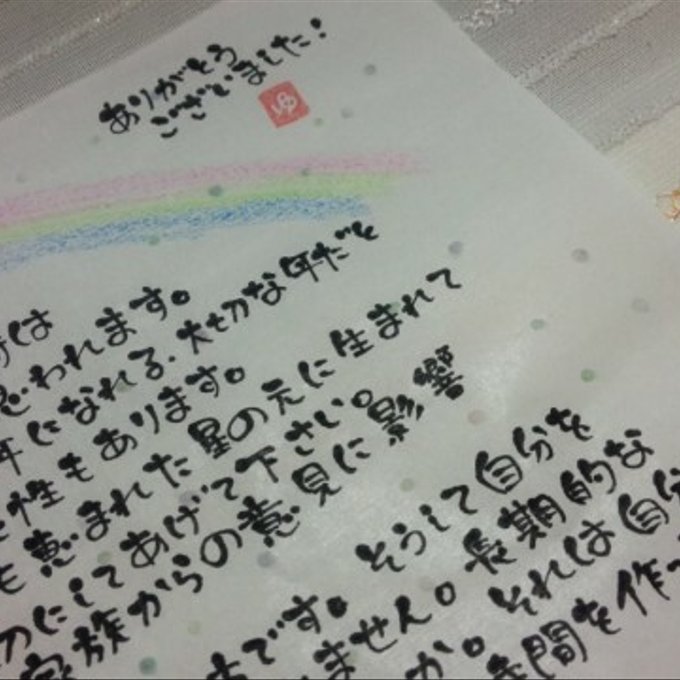 ありがとう
ございました!
ゆ
は
思われます。
年になれる、大切な年だと
性もあります。
も恵まれた星の元に生まれて
にしてあげて下さい。
家族からの意見に影響
です。そうして自分を
ません。長期的な
か。それは自分
時間を作